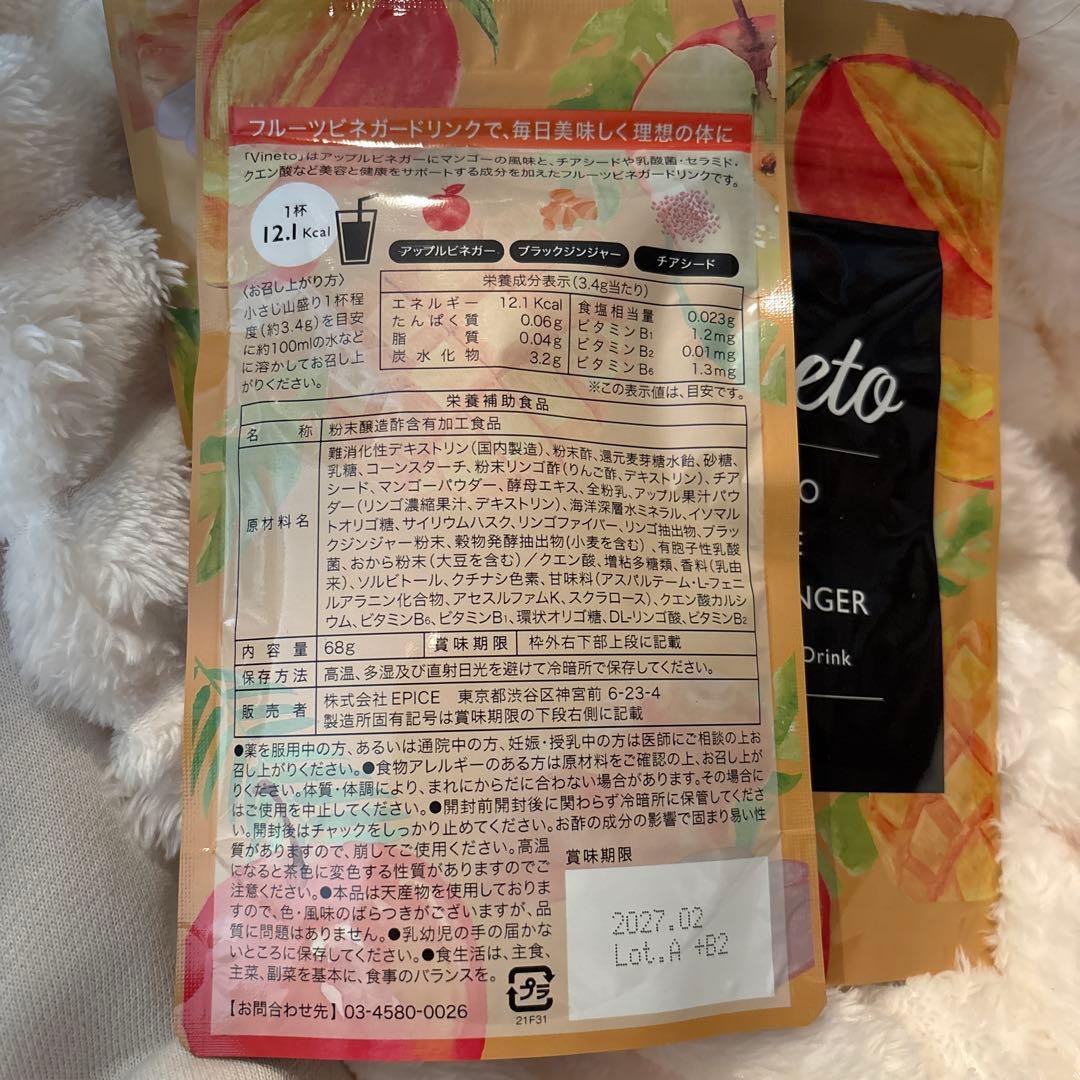 フルーツビネガードリンクで、毎日美味しく理想の体に
「Vineto」はアップルビネガーにマンゴーの風味と、チアシードや乳酸菌・セラミド・
クエン酸など美容と健康をサポートする成分を加えたフルーツビネガードリンクです。
1杯
12.1 Kcal
アップルビネガー
ブラックジンジャー
チアシード
〈お召し上がり方〉
小さじ山盛り1杯程
度(約3.4g)を目安
に約100mlの水など
に溶かしてお召し上
がりください。
栄養成分表示(3.4g当たり)
エネルギー 12.1 Kcal
たんぱく質 0.06g
脂質 0.04g
炭水化物 3.2g
食塩相当量 0.023g
ビタミンB1 1.2mg
ビタミンB2 0.01mg
ビタミンB6 1.3mg
※この表示値は、目安です。
栄養補助食品
名称 粉末醸造酢含有加工食品
原材料名
難消化性デキストリン(国内製造)、粉末酢、還元麦芽糖水飴、砂糖、
乳糖、コーンスターチ、粉末リンゴ酢(りんご酢、デキストリン)、チア
シード、マンゴーパウダー、酵母エキス、全粉乳、アップル果汁パウ
ダー(リンゴ濃縮果汁、デキストリン)、海洋深層水ミネラル、イソマル
トオリゴ糖、サイリウムハスク、リンゴファイバー、リンゴ抽出物、ブラッ
クジンジャー粉末、穀物発酵抽出物(小麦を含む)、有胞子性乳酸
菌、おから粉末(大豆を含む)/クエン酸、増粘多糖類、香料(乳由
来)、ソルビトール、クチナシ色素、甘味料(アスパルテーム・L-フェニ
ルアラニン化合物、アセスルファムK、スクラロース)、クエン酸カルシ
ウム、ビタミンB6、ビタミンB1、環状オリゴ糖、DL-リンゴ酸、ビタミンB2
内容量 68g 賞味期限 枠外右下部上段に記載
保存方法 高温、多湿及び直射日光を避けて冷暗所で保存してください。
販売者
株式会社EPICE 東京都渋谷区神宮前 6-23-4
製造所固有記号は賞味期限の下段右側に記載
●薬を服用中の方、あるいは通院中の方、妊娠・授乳中の方は医師にご相談の上お
召し上がりください。●食物アレルギーのある方は原材料をご確認の上、お召し上がり
ください。体質・体調により、まれにからだに合わない場合があります。その場合に
はご使用を中止してください。●開封前開封後に関わらず冷暗所に保管してくださ
い。開封後はチャックをしっかり止めてください。お酢の成分の影響で固まり易い性
質がありますので、崩してご使用ください。高温
になると茶色に変色する性質がありますのでご
注意ください。●本品は天産物を使用しておりま
すので、色・風味のばらつきがございますが、品
質に問題はありません。●乳幼児の手の届かな
いところに保存してください。●食生活は、主食、
主菜、副菜を基本に、食事のバランスを。
【お問合わせ先】03-4580-0026
賞味期限
2027.02
Lot.A +B2
プラ
21F31
eto
O
E
NGER
Drink